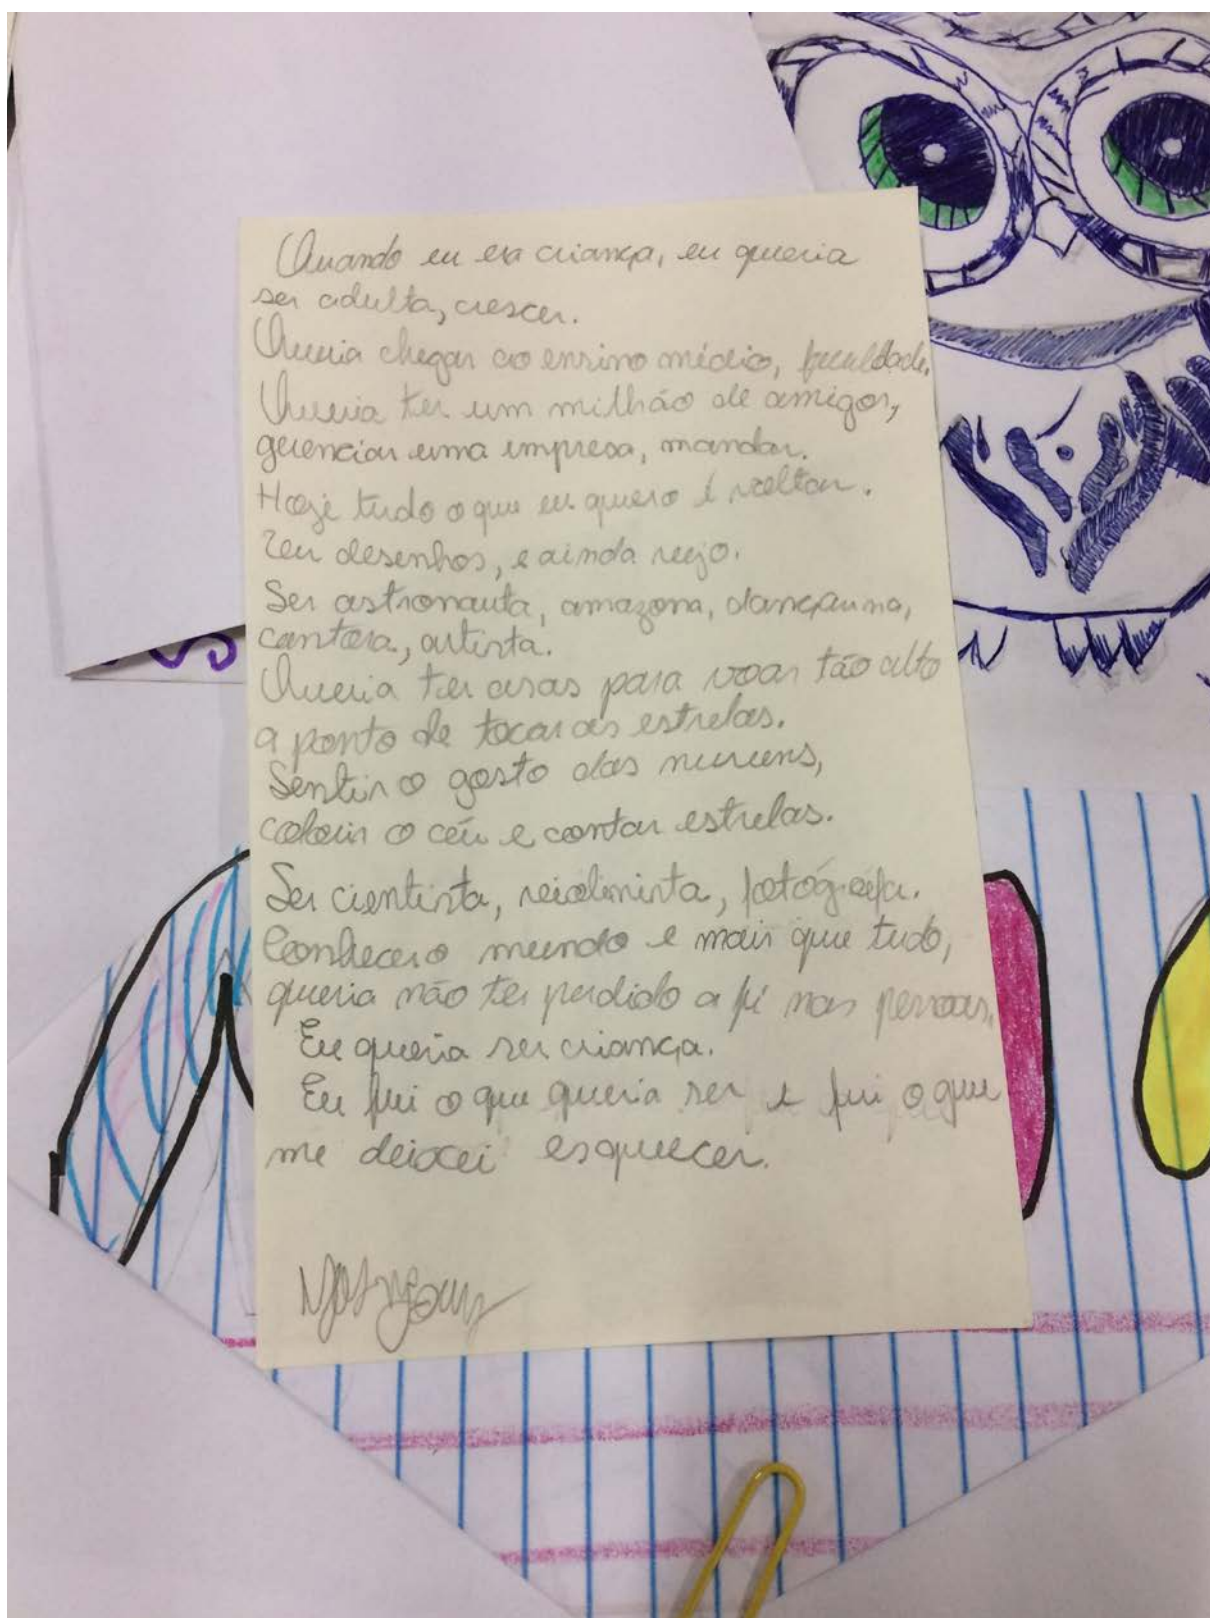 Quando eu era criança, eu queria
ser adulta, crescer.
Queria chegar ao ensino médio, faculdade.
Queria ter um milhão de amigos,
gerenciar uma empresa, mandar.
Hoje tudo o que eu quero é voltar.
Ler desenhos, e ainda vejo.
Ser astronauta, amazona, dançarina,
cantora, artista.
Queria ter asas para voar tão alto
a ponto de tocar as estrelas.
Sentir o gosto das nuvens,
colorir o céu e contar estrelas.
Ser cientista, violinista, fotógrafa.
Conhecer o mundo e mais que tudo,
queria não ter perdido a fé nas pessoas.
Eu queria ser criança.
Eu fui o que queria ser e fui o que
me deixei esquecer.